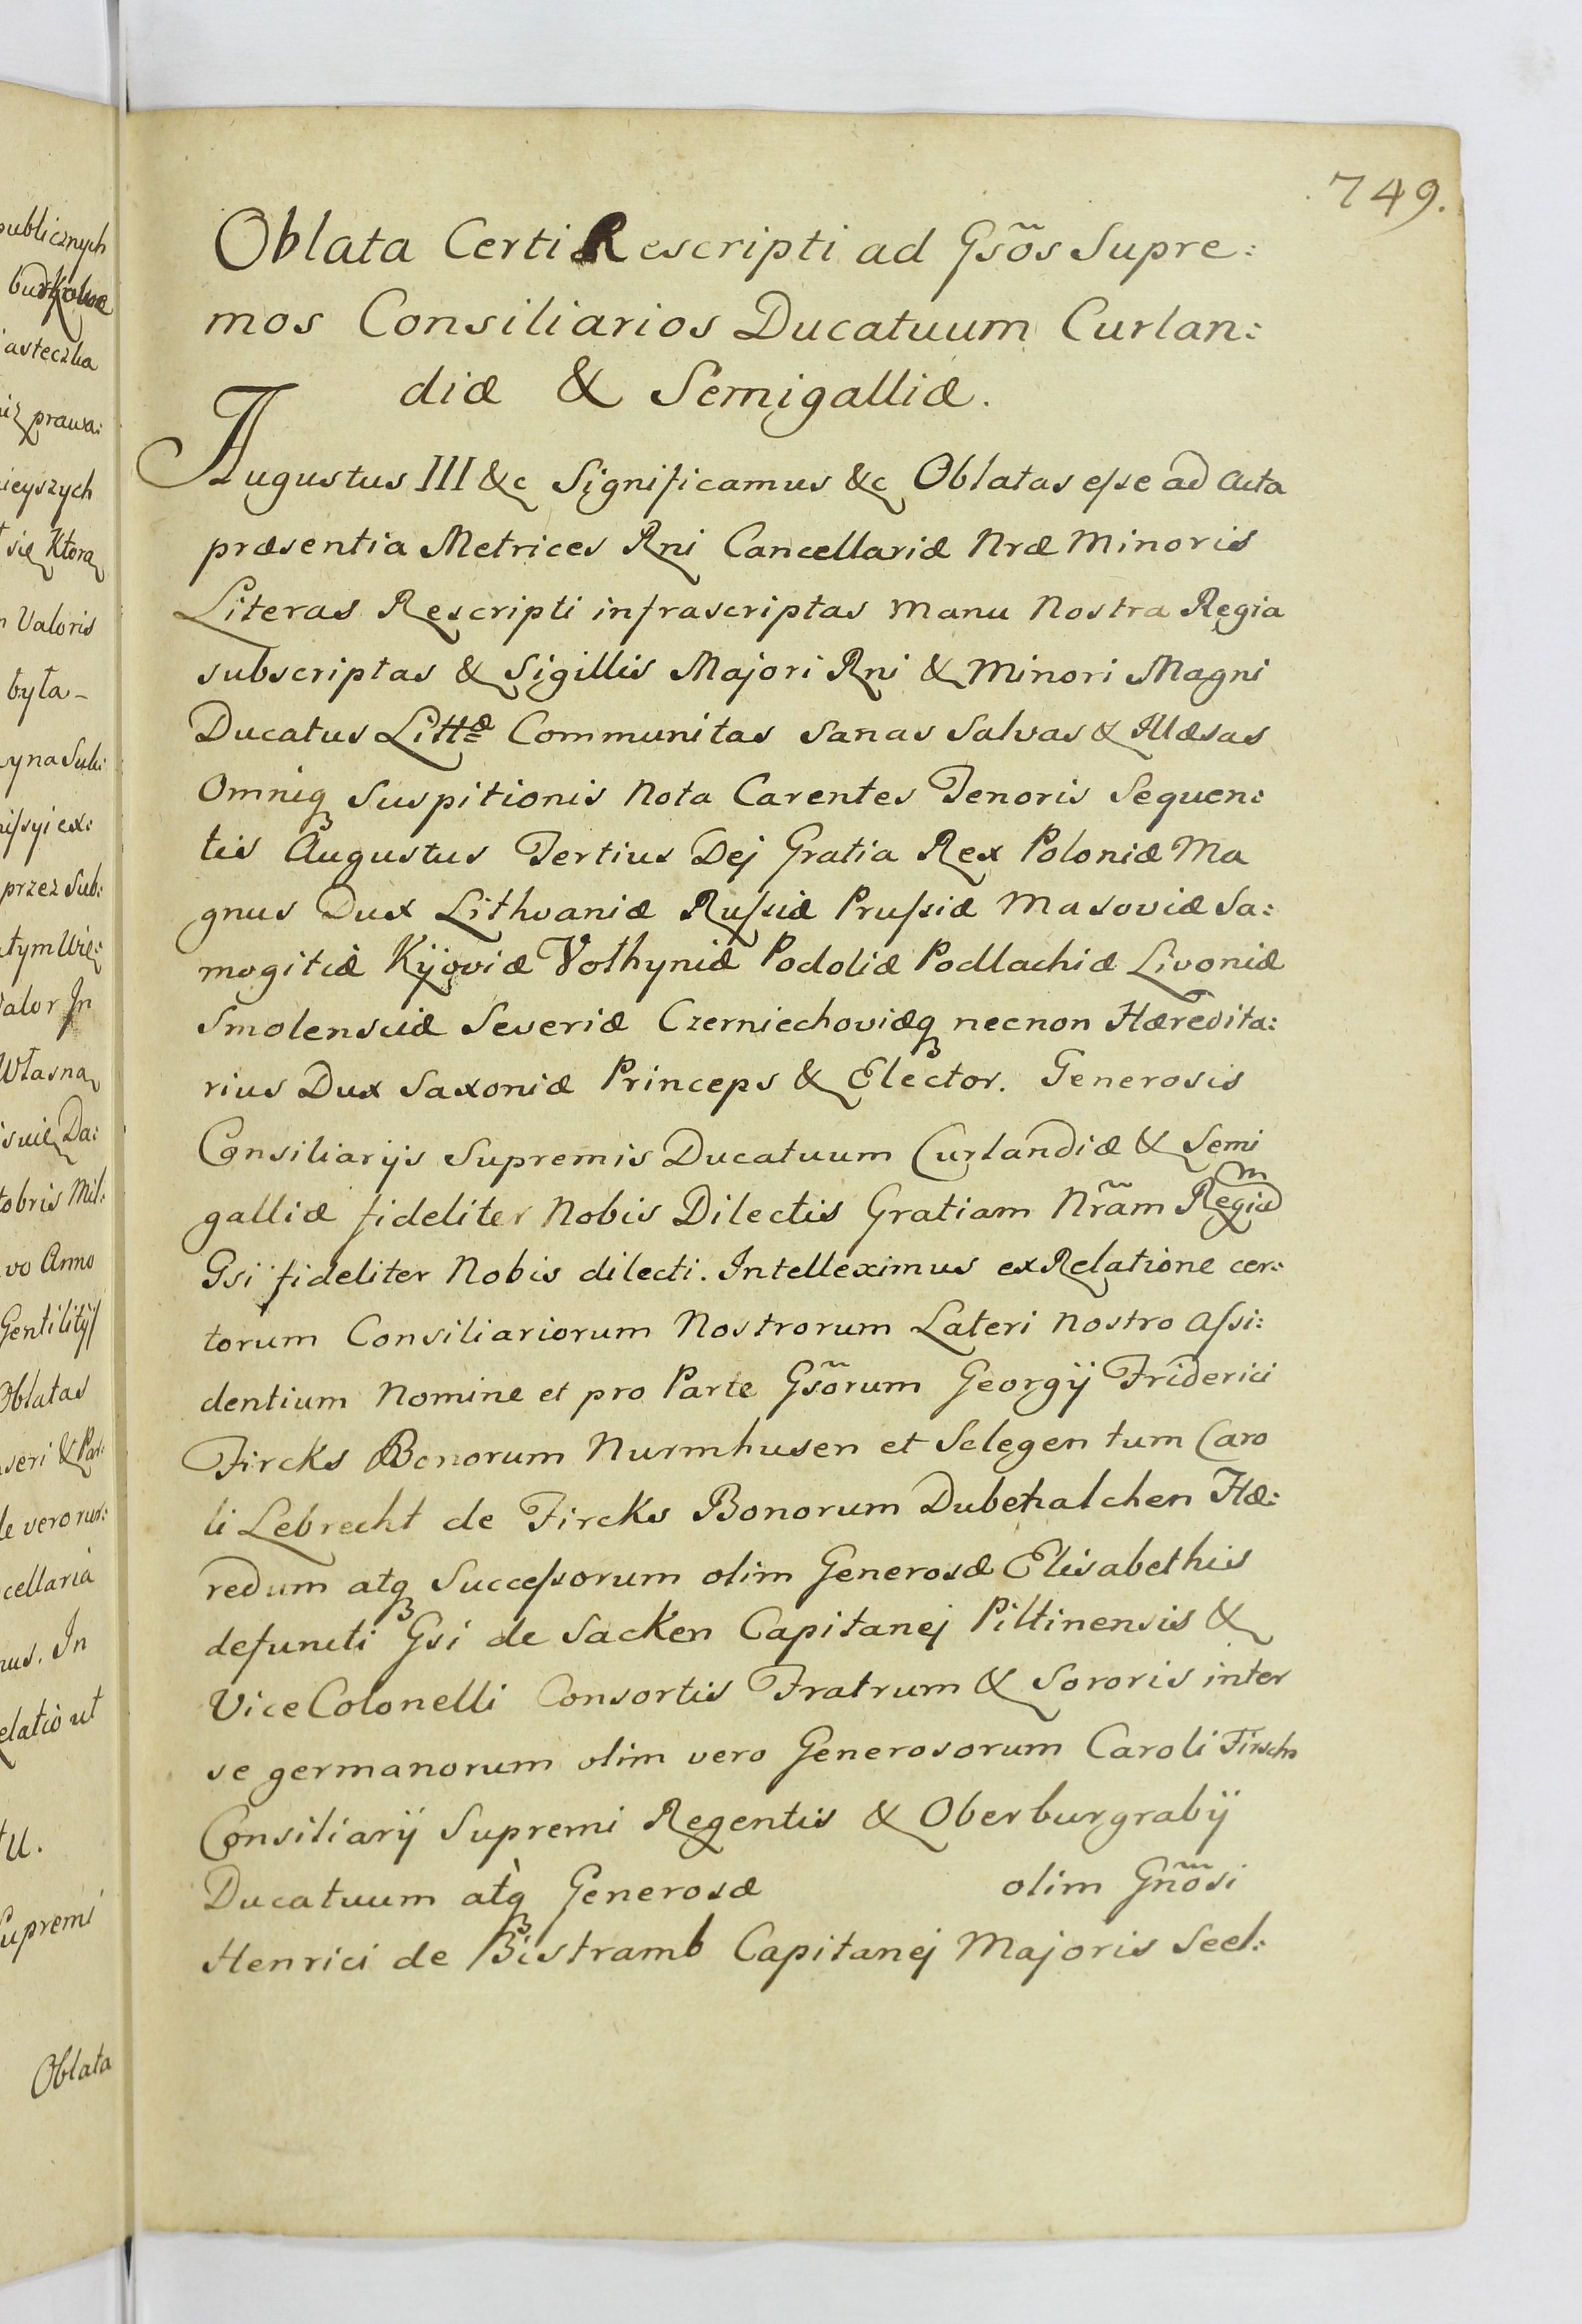 publicznych
asteczka
prawa:
ieyszych
się Ktorą
Valoris
była-
przez Sub:
atym Wie:
Valor In
Własną
tobris Mil:
vo Anno
Gentilitÿ
Oblatas
cellaria
nus. In
elatio ut
Supremi
Oblata
749.
Oblata Certi Rescripti ad Gsõs Supre:
mos Consiliarios Ducatuum Curlan:
diæ & Semigalliæ.
Augustus III &c Significamus &c Oblatas eſse ad Acta
præsentia Metrices Rni Cancellariæ Nræ Minoris
Literas Rescripti infrascriptas Manu Nostra Regia
subscriptas & Sigillis Majori Rni & Minori Magni
Ducatus Littæ Communitas Sanas Salvas & Illæsas
Omniq Suspitionis Nota Carentes Tenoris Sequen:
tis Augustus Tertius Dej Gratia Rex Poloniæ Ma
gnus Dux Lithvaniæ Ruſsiæ Pruſsiæ Masoviæ Sa:
mogitiæ Kÿoviæ Volhyniæ Podoliæ Podlachiæ Livoniæ
Smolensciæ Severiæ Czerniechoviæq necnon Hæredita:
rius Dux Saxoniæ Princeps & Elector. Generosis
Consiliarijs Supremis Ducatuum Curlandiæ & Semi
galliæ fideliter Nobis Dilectis Gratiam Nrãm Regiam
Gsi fideliter Nobis dilecti. Intelleximus ex Relatione cer:
torum Consiliariorum Nostrorum Lateri Nostro Aſsi:
dentium Nomine et pro Parte Gsõrum Georgÿ Friderici
Fircks Bonorum Nurmhusen et Selegen tum Caro
li Lebrecht de Fircks Bonorum Dubehalchen Hæ:
redum atq Succeſsorum olim Generosæ Elisabethis
defuncti Gsi de Sacken Capitanej Piltinensis &
Vice Colonelli Consortis Fratrum & Sororis inter
se germanorum olim vero Generosorum Caroli Firschs
Consiliarÿ Supremi Regentis & Oberburgrabÿ
Ducatuum atq̀ Generosæ olim Gnõsi
Henrici de Bistramb Capitanej Majoris Seel: